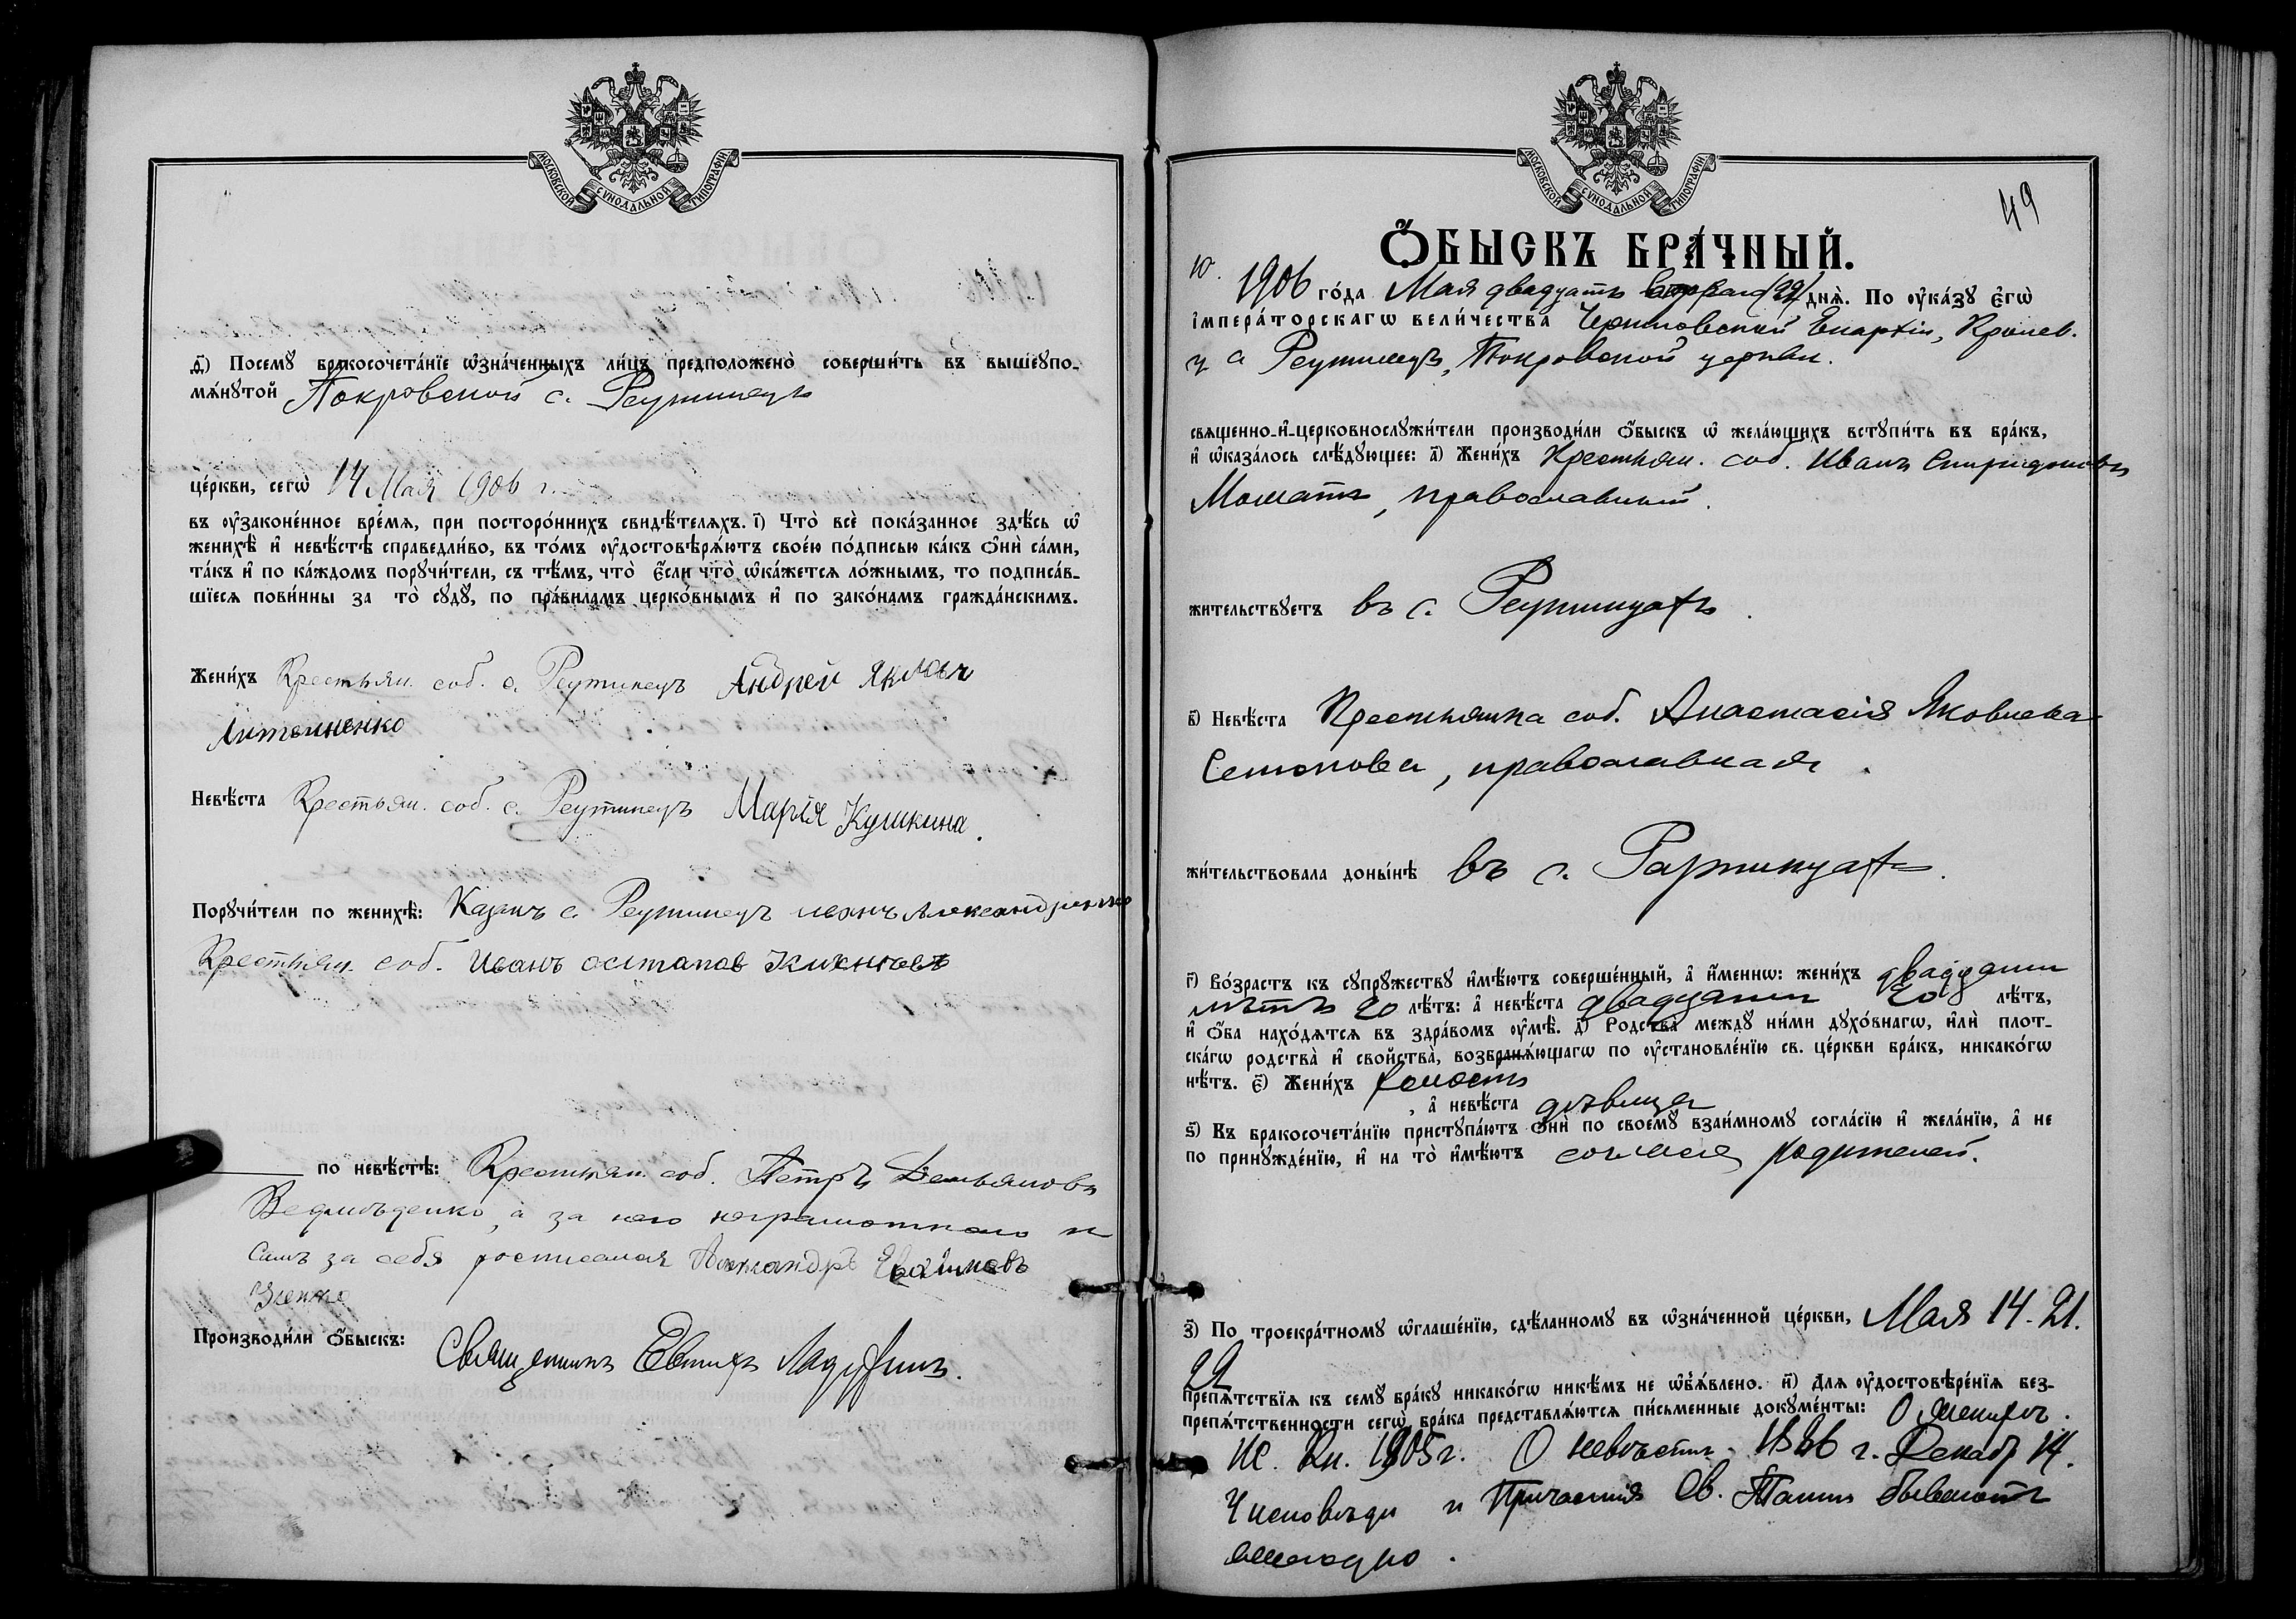 МОСКОВСКОЙ СѴНОДАЛЬНОЙ ТИПОГРАФІИ
д҃) Посемꙋ бракосочета́нїе ѡ҆зна́ченныхъ ли́цъ предположено̀ соверши́ть въ вышеупо-
мѧ́нꙋтой Покровской с. Реутинецъ
це́ркви, сегѡ̀ 14 Мая 1906 г.
въ ᲂу҆законе́нное вре́мѧ, при посторо́ннихъ свидѣ́телѧхъ. і҃) Что̀ всѐ пока́занное здѣ́сь ѡ҆
женихѣ̀ и҆ невѣ́стѣ справедли́во, въ то́мъ ᲂу҆достовѣрѧ́ютъ свое́ю по́дписью ка́къ ѻ҆нѝ са́ми,
та́къ и҆ по ка́ждомъ порꙋчи́тели, съ тѣ́мъ, что̀ є҆́сли что̀ ѡ҆ка́жетсѧ ло́жнымъ, то подписа́в-
шїесѧ пови́нны за то̀ сꙋдꙋ̀, по пра́виламъ церко́внымъ и҆ по зако́намъ гражда́нскимъ.
Жени́хъ Крестьян. соб. с. Реутинецъ Андрей Яковл
Литвиненко
Невѣ́ста Крестьян. соб. с. Реутинецъ Марія Кушкина.
Порꙋчи́тели по женихѣ̀: Казакъ с. Реутинецъ иванъ Александренко
Крестьян. соб. Иванъ остапов
по невѣ́стѣ: Крестьян. соб. Петръ Демьяновъ
Ведмѣденко, а за него неграмотнаго и
самъ за себя росписался Александръ
Производи́ли ѻ҆́быскъ: Священникъ Евтихъ
МОСКОВСКОЙ СѴНОДАЛЬНОЙ ТИПОГРАФІИ
49
Ѻ҆́БЫСКЪ БРА́ЧНЫЙ.
10. 1906 го́да Мая двадцать втораго (22) днѧ̀. По ᲂу҆ка́зꙋ є҆гѡ̀
і҆мпера́торскагѡ вели́чества Черниговской Епархіи, Кролев.
у с. Реутинецъ, Покровской церкви.
свѧщенно-и҆-церковнослꙋжи́тели производи́ли ѻ҆́быскъ ѡ҆ жела́ющихъ встꙋпи́ть въ бра́къ,
и҆ ѡ҆каза́лось слѣ́дꙋющее: а҃) Жени́хъ Крестьян. соб. Иванъ Спиридоновъ
православный.
жи́тельствꙋетъ въ с. Реутинцахъ.
в҃) Невѣ́ста Крестьянка соб. Анастасія Яковлева
православная.
жи́тельствовала доны́нѣ въ с. Реутинцахъ.
г҃) Во́зрастъ къ сꙋпрꙋ́жествꙋ и҆мѣ́ютъ соверше́нный, а҆ и҆́менно: жени́хъ двадцати
лѣтъ 20 лѣ́тъ: а҆ невѣ́ста двадцати 20 лѣ́тъ,
и҆ ѻ҆́ба нахо́дѧтсѧ въ здра́вомъ ᲂу҆мѣ̀. д҃) Родства̀ междꙋ ни́ми дꙋхо́внагѡ, и҆лѝ плот-
ска́гѡ родства̀ и҆ свойства̀, возбранѧ́ющагѡ по ᲂу҆становле́нїю св. це́ркви бра́къ, никако́гѡ
нѣ́тъ. є҃) Жени́хъ холостъ
, а҆ невѣ́ста дѣвица
ѕ҃) Къ бракосочета́нїю пристꙋпа́ютъ ѻ҆нѝ по своемꙋ̀ взаи́мномꙋ согла́сїю и҆ жела́нїю, а҆ не
по принꙋжде́нїю, и҆ на то̀ и҆мѣ́ютъ согласіе родителей.
з҃) По троекра́тномꙋ ѡ҆глаше́нїю, сдѣ́ланномꙋ въ ѡ҆зна́ченной це́ркви, Мая 14. 21.
22
препѧ́тствїѧ къ семꙋ̀ бра́кꙋ никако́гѡ никѣ́мъ не ѡ҆б̾ѧ́влено. и҃) Длѧ ᲂу҆достовѣре́нїѧ без-
препѧ́тственности сегѡ̀ бра́ка представлѧ́ютсѧ пи́сьменные докꙋме́нты: О женихѣ.
Ис. Кн. 1905 г. О невѣстѣ 1886 г. Декабр 14.
У исповѣди и Причастія Св. Таинъ бываютъ
ежегодно.